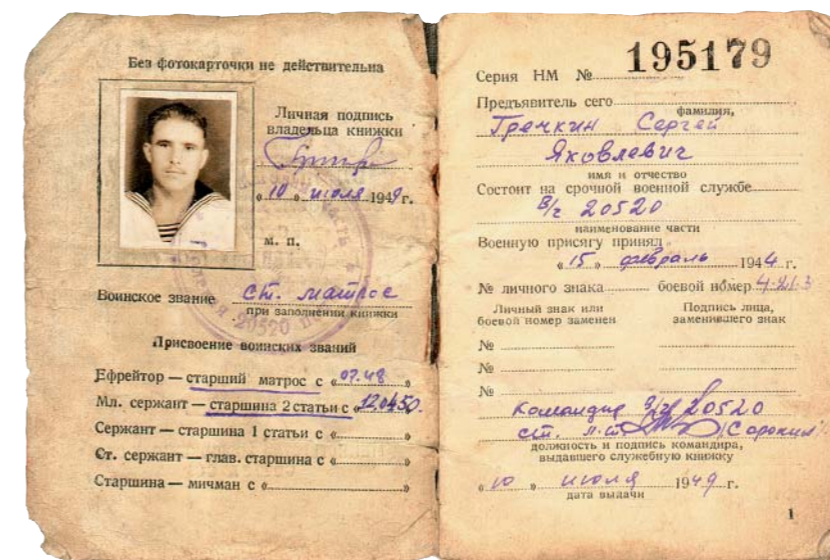 Без фотокарточки не действительна
Личная подпись
владельца книжки
„10„ июля 1949г.
м. п.
20520
Воинское звание ст. матрос
при заполнении книжки
Присвоение воинских званий
Ефрейтор — старший матрос с «07.48»
Мл. сержант — старшина 2 статьи с «12.04.50.
Сержант — старшина 1 статьи с «»
Ст. сержант — глав. старшина с «»
Старшина — мичман с «»
Серия НМ № 195179
Предъявитель сего
фамилия,
Гречкин Сергей
Яковлевич
имя и отчество
Состоит на срочной военной службе
В/ч 20520
наименование части
Военную присягу принял
„15„ февраль 1944 г.
№ личного знака боевой номер 4-21-3
Личный знак или
боевой номер заменен
Подпись лица,
заменившего знак
№
№
№
Командир В/ч 20520
ст. л-т /Сорокин/
должность и подпись командира,
выдавшего служебную книжку
„10„ июля 1949 г.
дата выдачи
1